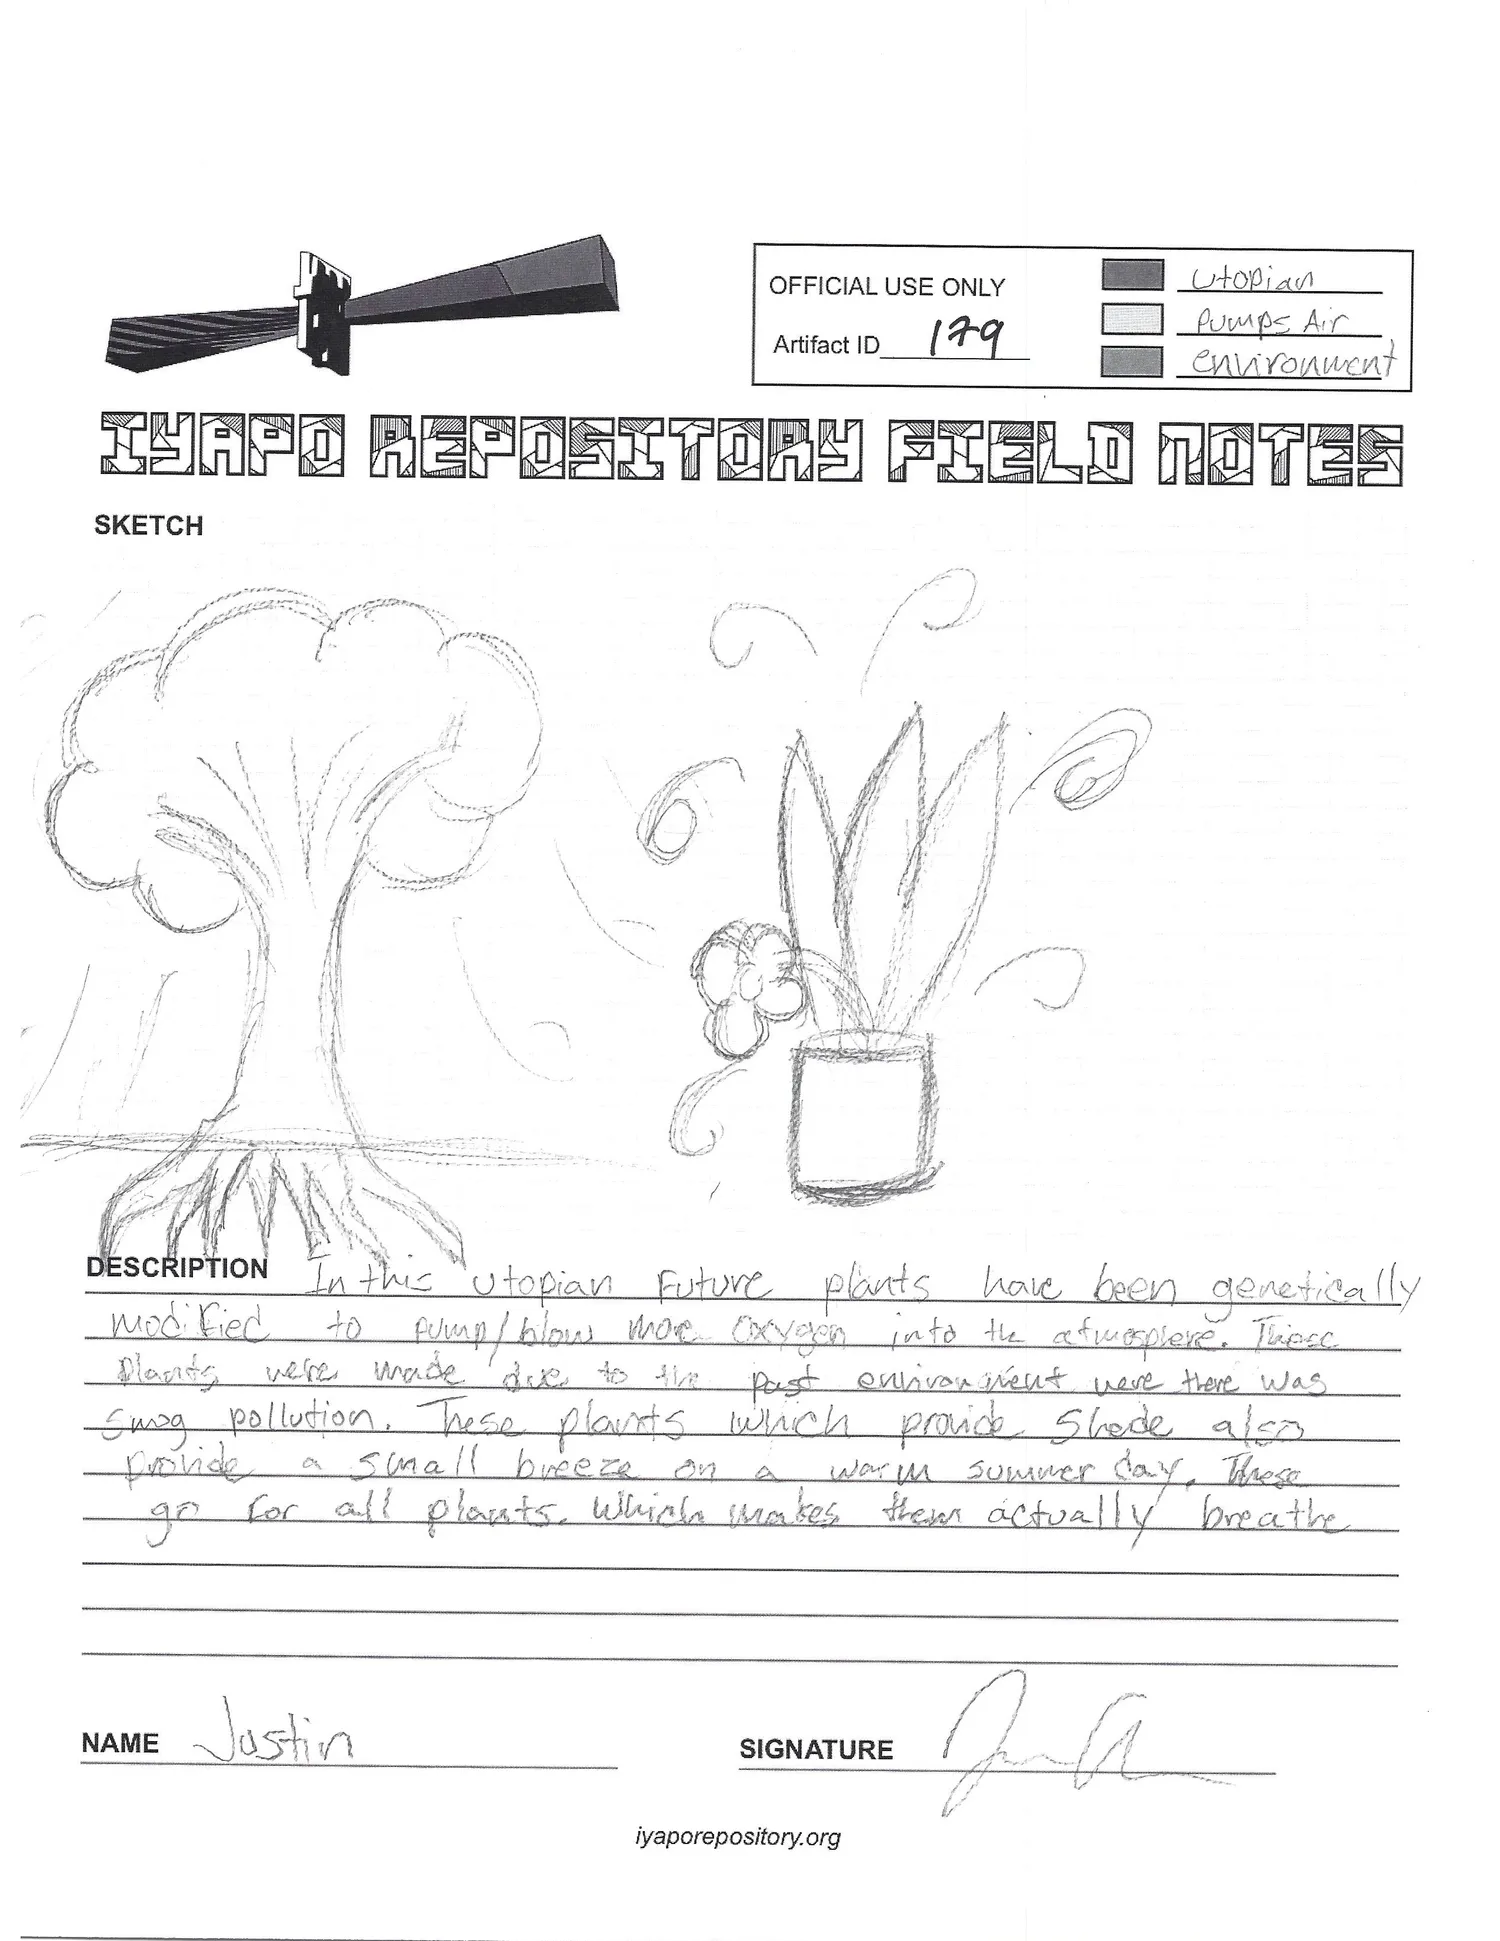 OFFICIAL USE ONLY
Artifact ID 179
Utopian
Pumps Air
environment
IYAPO REPOSITORY FIELD NOTES
SKETCH
DESCRIPTION In this utopian future plants have been genetically
modified to pump/blow more oxygen into the atmosphere. These
plants were made due to the past environment were there was
smog pollution. These plants which provide shade also
provide a small breeze on a warm summer day. These
go for all plants. Which makes them actually breathe
NAME Justin
SIGNATURE
iyaporepository.org